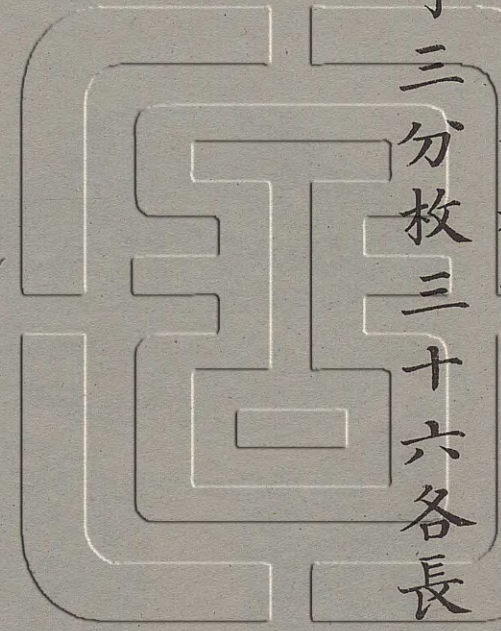 寸三分枚三十六各長